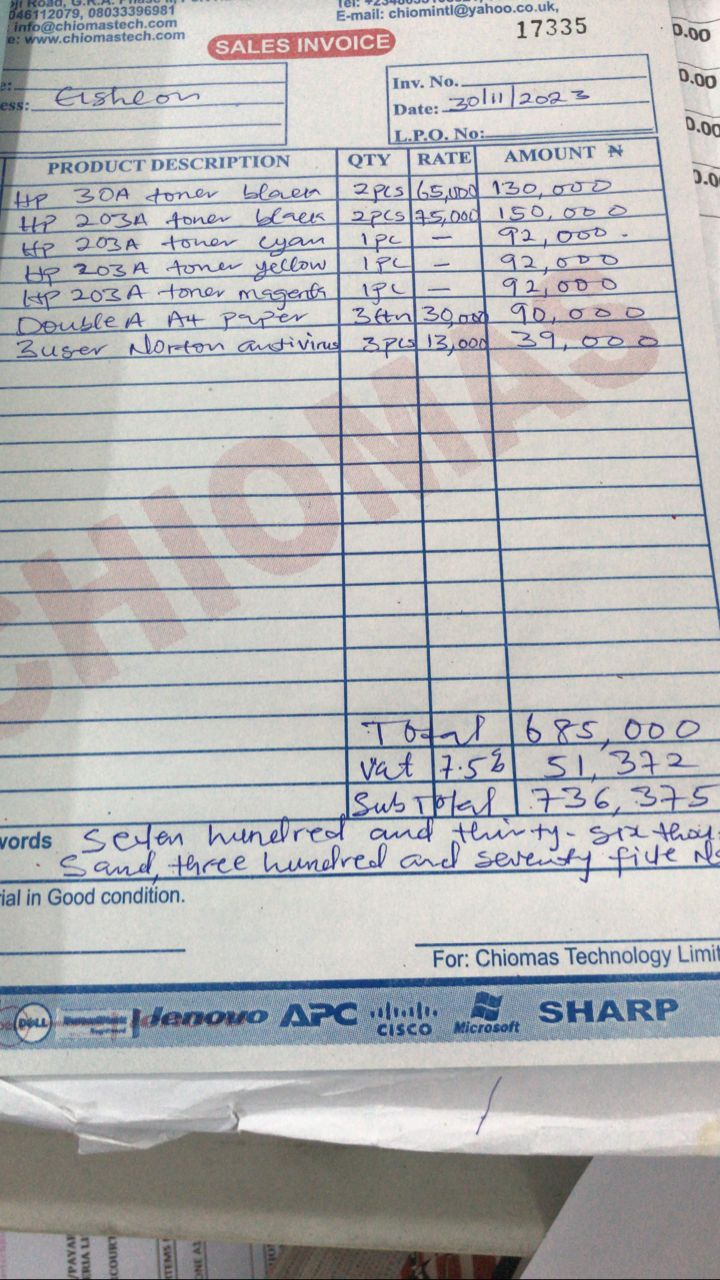 046112079, 08033396981
info@chiomastech.com
www.chiomastech.com
E-mail: chiomintl@yahoo.co.uk,
17335
SALES INVOICE
ess: Elsheon
Inv. No.
Date: 30/11/2023
L.P.O. No:
PRODUCT DESCRIPTION QTY RATE AMOUNT ₦
HP 30A toner black 2pcs 65,000 130,000
HP 203A toner black 2pcs 75,000 150,000
HP 203A toner cyan 1pc – 92,000.
HP 203A toner yellow 1pc – 92,000
HP 203A toner magenta 1pc – 92,000
Double A A4 paper 3ctn 30,000 90,000
3user Norton antivirus 3pcs 13,000 39,000
CHIOMAS
Total 685,000
Vat 7.5% 51,372
Sub Total 736,375
words Seven hundred and thirty-six thou-
sand, three hundred and seventy five
ial in Good condition.
For: Chiomas Technology Limit
DELL lenovo APC CISCO Microsoft SHARP
0.00
0.00
0.00
0.0